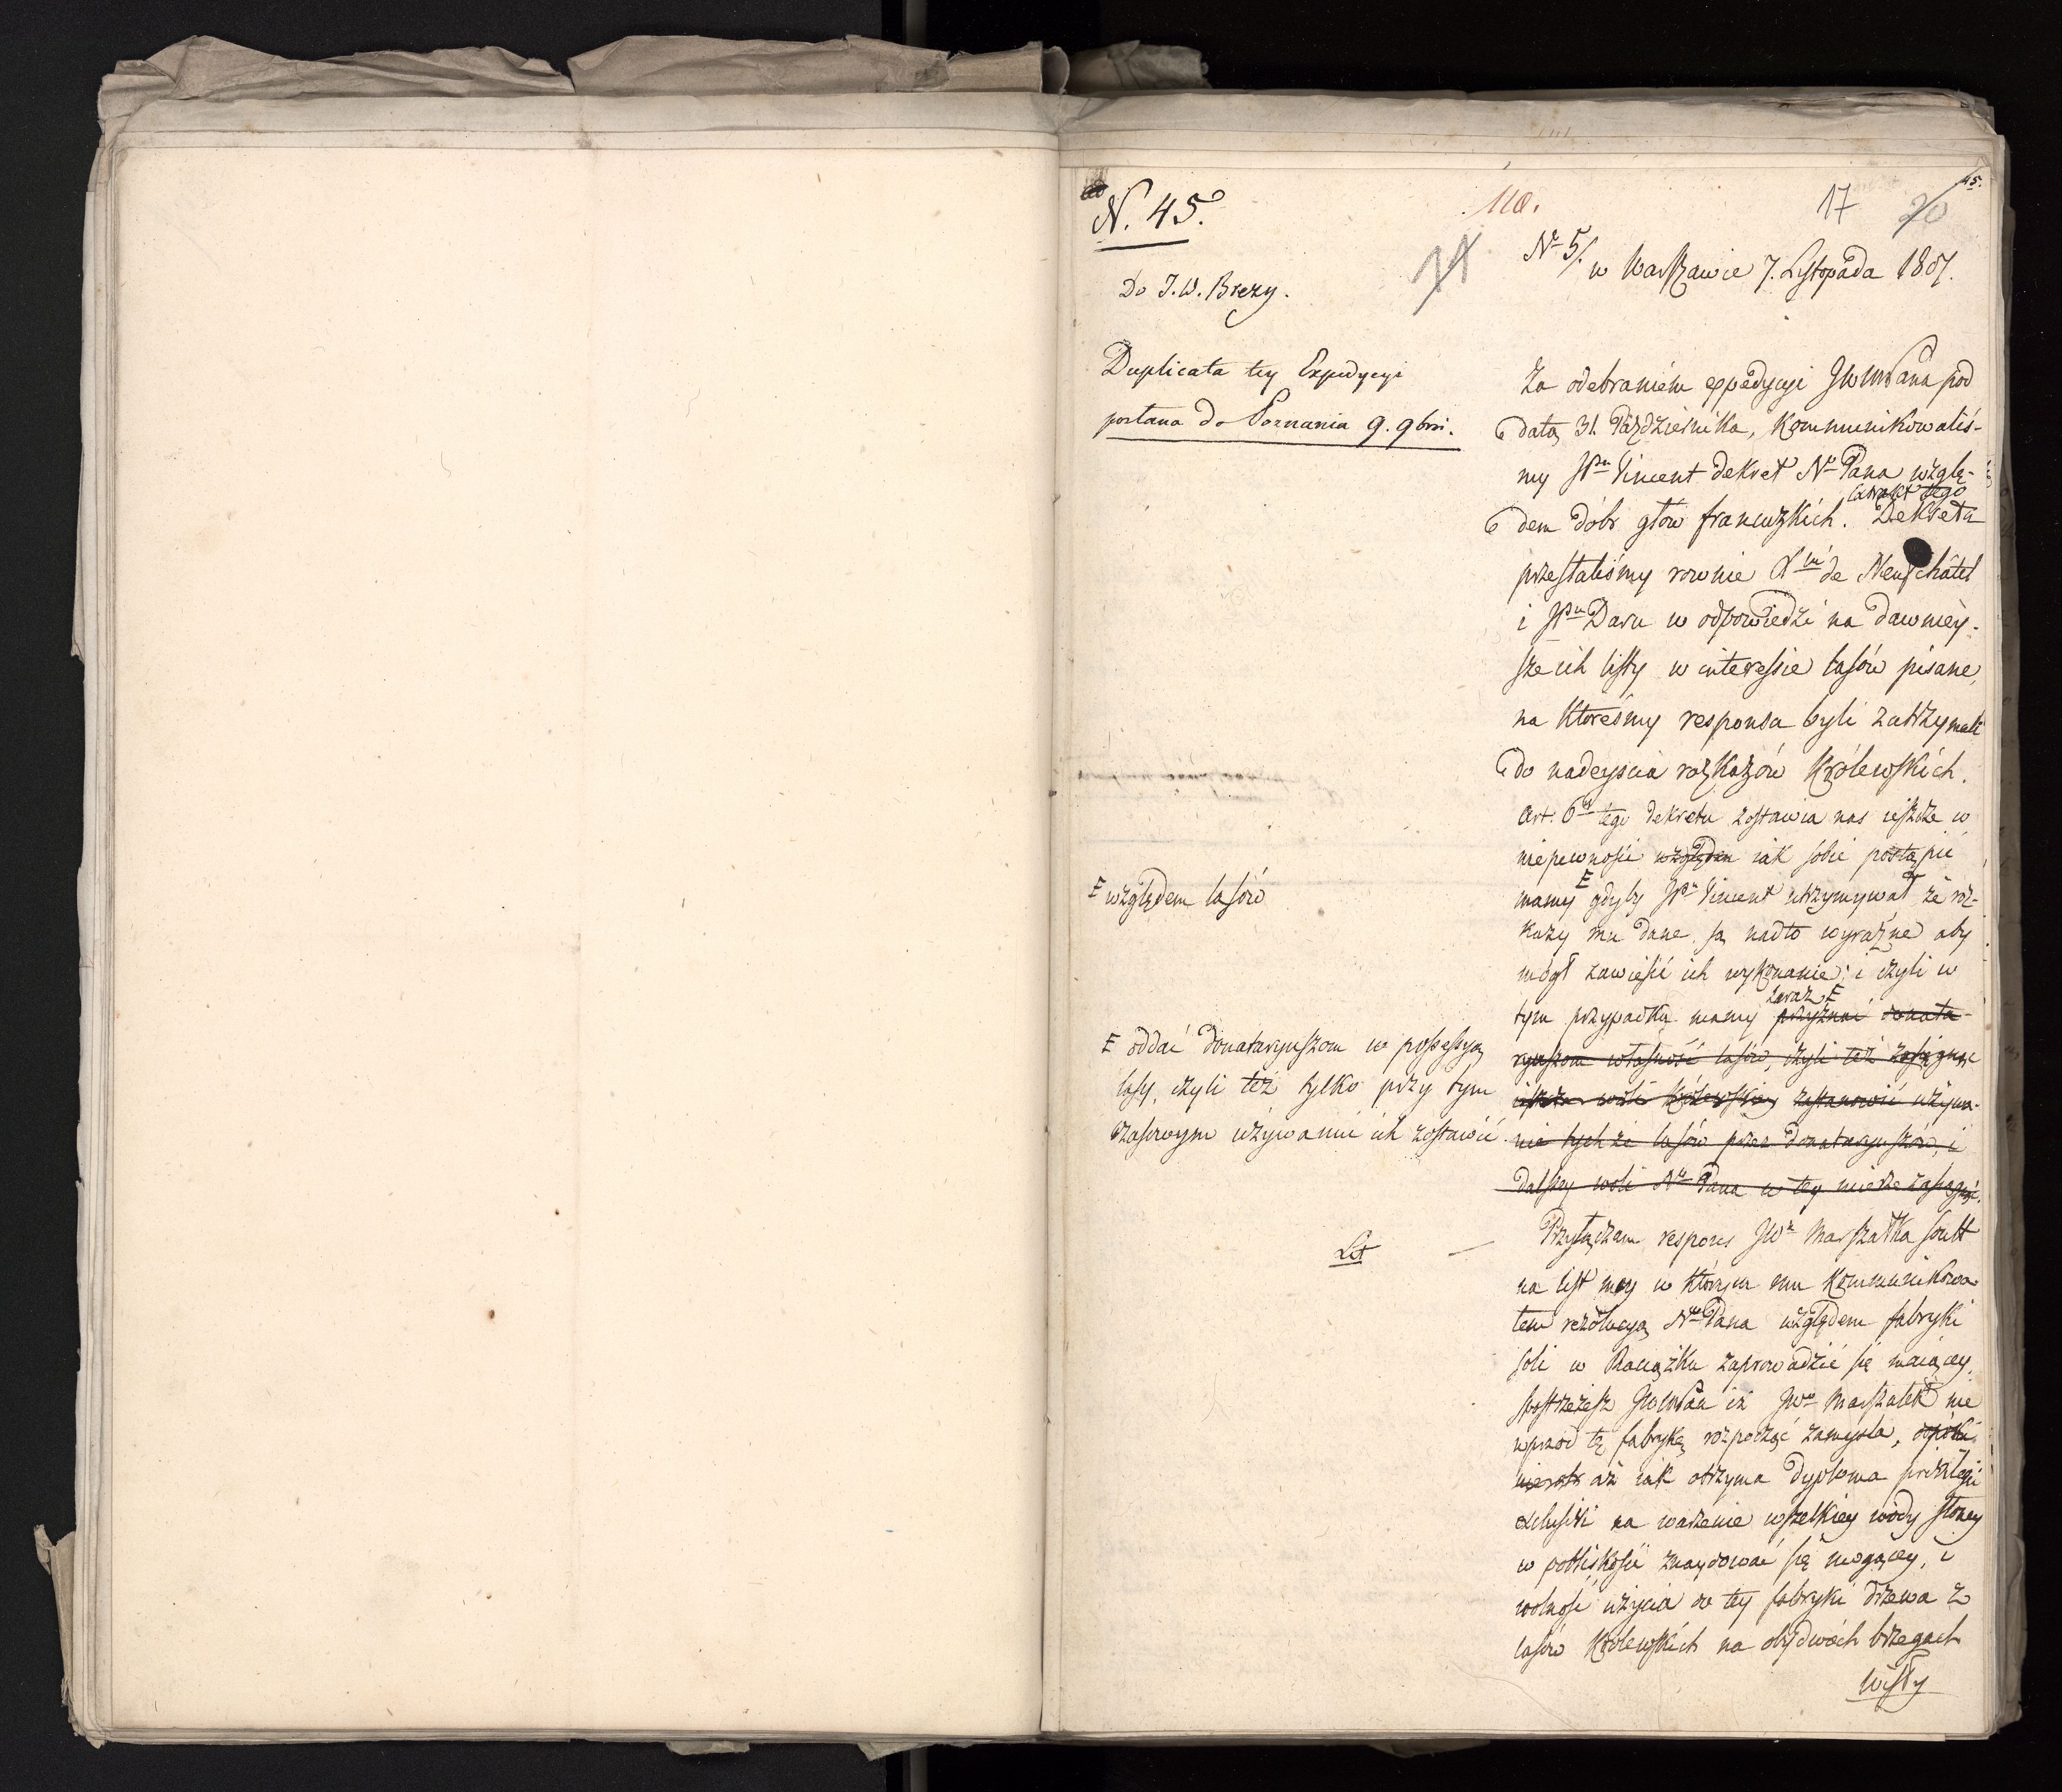 N. 45.
118.
17
20
45.
Nº 5/.
w Warszawie 7. Listopada 1807.
Do J. W. Brezy.
Duplicata tey Expedycyi
posłana do Poznania 9. 9bris.
Za odebraniem expedycyi JWWPana pod
datą 31. Października, kommunikowaliś-
my JPu Vincent dekret Nº Pana wzglę-
dem dóbr głów francuzkich. Extrakt tego Dekretu
przesłaliśmy rownie Xciu de Neufchâtel
i JPu Daru w odpowiedzi na dawniey-
sze ich listy w interessie lasów pisane,
na któreśmy responsa byli zatrzymali
do nadeyścia rozkazów Królewskich.
Art. 6ty tego dekretu zostawia nas ieszcze w
niepewności względem iak sobie postąpić
mamy gdyby JPn Vincent utrzymywał że roz-
kazy mu dane są nadto wyraźne aby
mógł zawiesić ich wykonanie; i czyli w
tym przypadku mamy zaraz przyznać donata-
ryuszom własność lasów, czyli też zasiągnąć
woli Królewskiey zostanowić używa-
nie tychże lasów przez donataryuszów, i
dalszey woli Nº Pana w tey mierze zasiągnąć.
względem lasów
oddać donataryuszom w possessyą
lasy, czyli też tylko przy tym
czasowym używaniu ich zostawić
Lit
Przyłączam respons JWº Marszałka Soult
na list moy w którym mu kommunikowa-
łem rezolucyą Nº Pana względem fabryki
soli w Raciążku zaprowadzić się maiącey,
spostrzeżesz JWWPan iż JWº Marszałek nie
wprzod tę fabrykę rozpocząć zamyśla,
aż iak otrzyma dyploma privilegii
exclusivi na warzenie wszelkiey wody słoney
w pobliskości znaydować się mogącey, i
wolność użycia do tey fabryki drzewa z
lasów Królewskich na obydwóch brzegach
Wisły